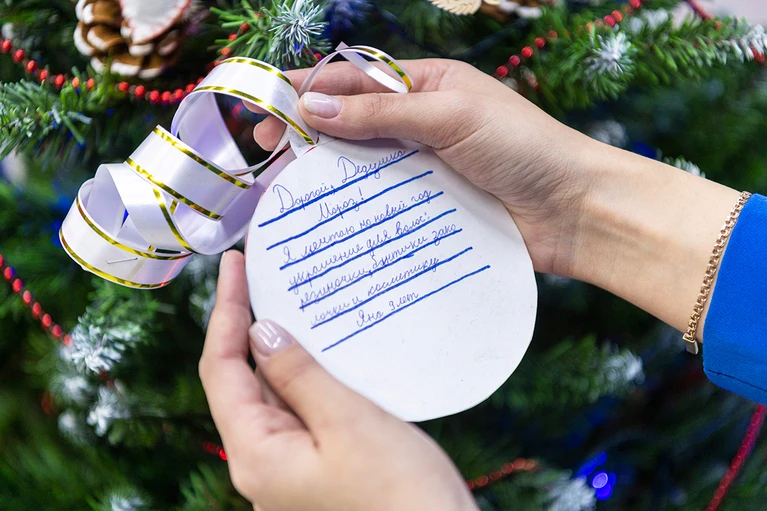 Дорогой, Дедушка
Мороз!
Я мечтаю на новый год
украшение для волос:
резиночки, бантики зако
лочки и косметику
Яна 9 лет